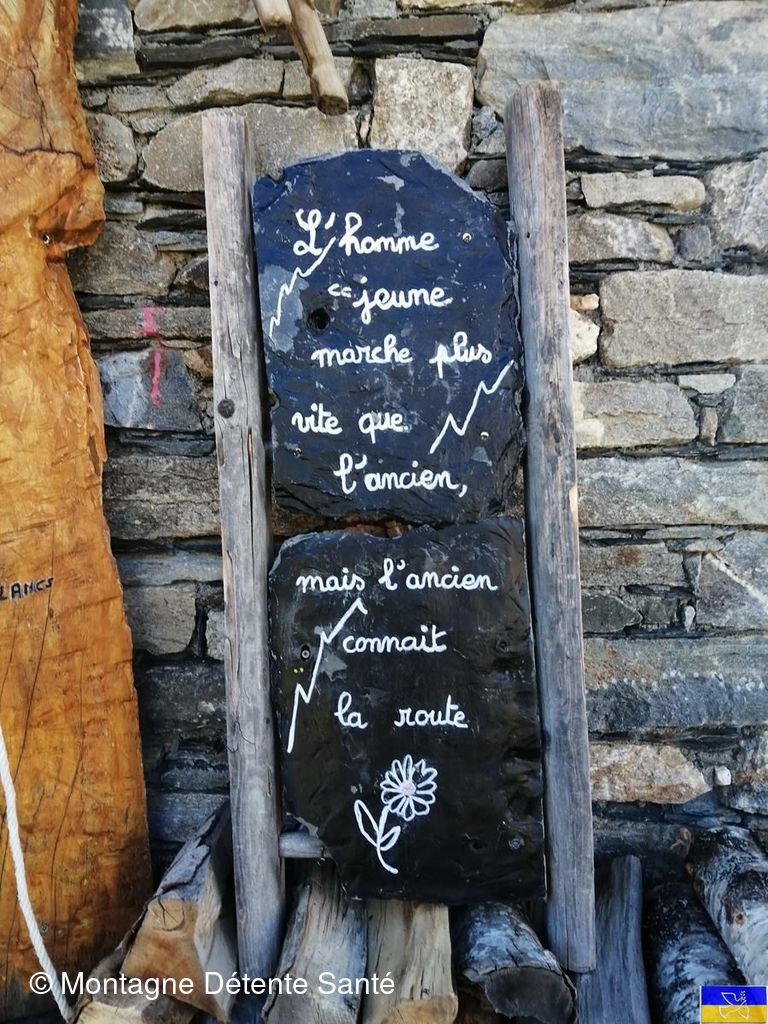 L'homme
jeune
marche plus
vite que
l'ancien,
mais l'ancien
connait
la route
LANCS
© Montagne Détente Santé